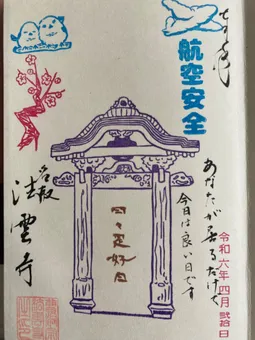 航空安全
あなたが居るだけで
今日は良い日です
令和六年四月弐拾日
日々是好日
名取
法雲寺